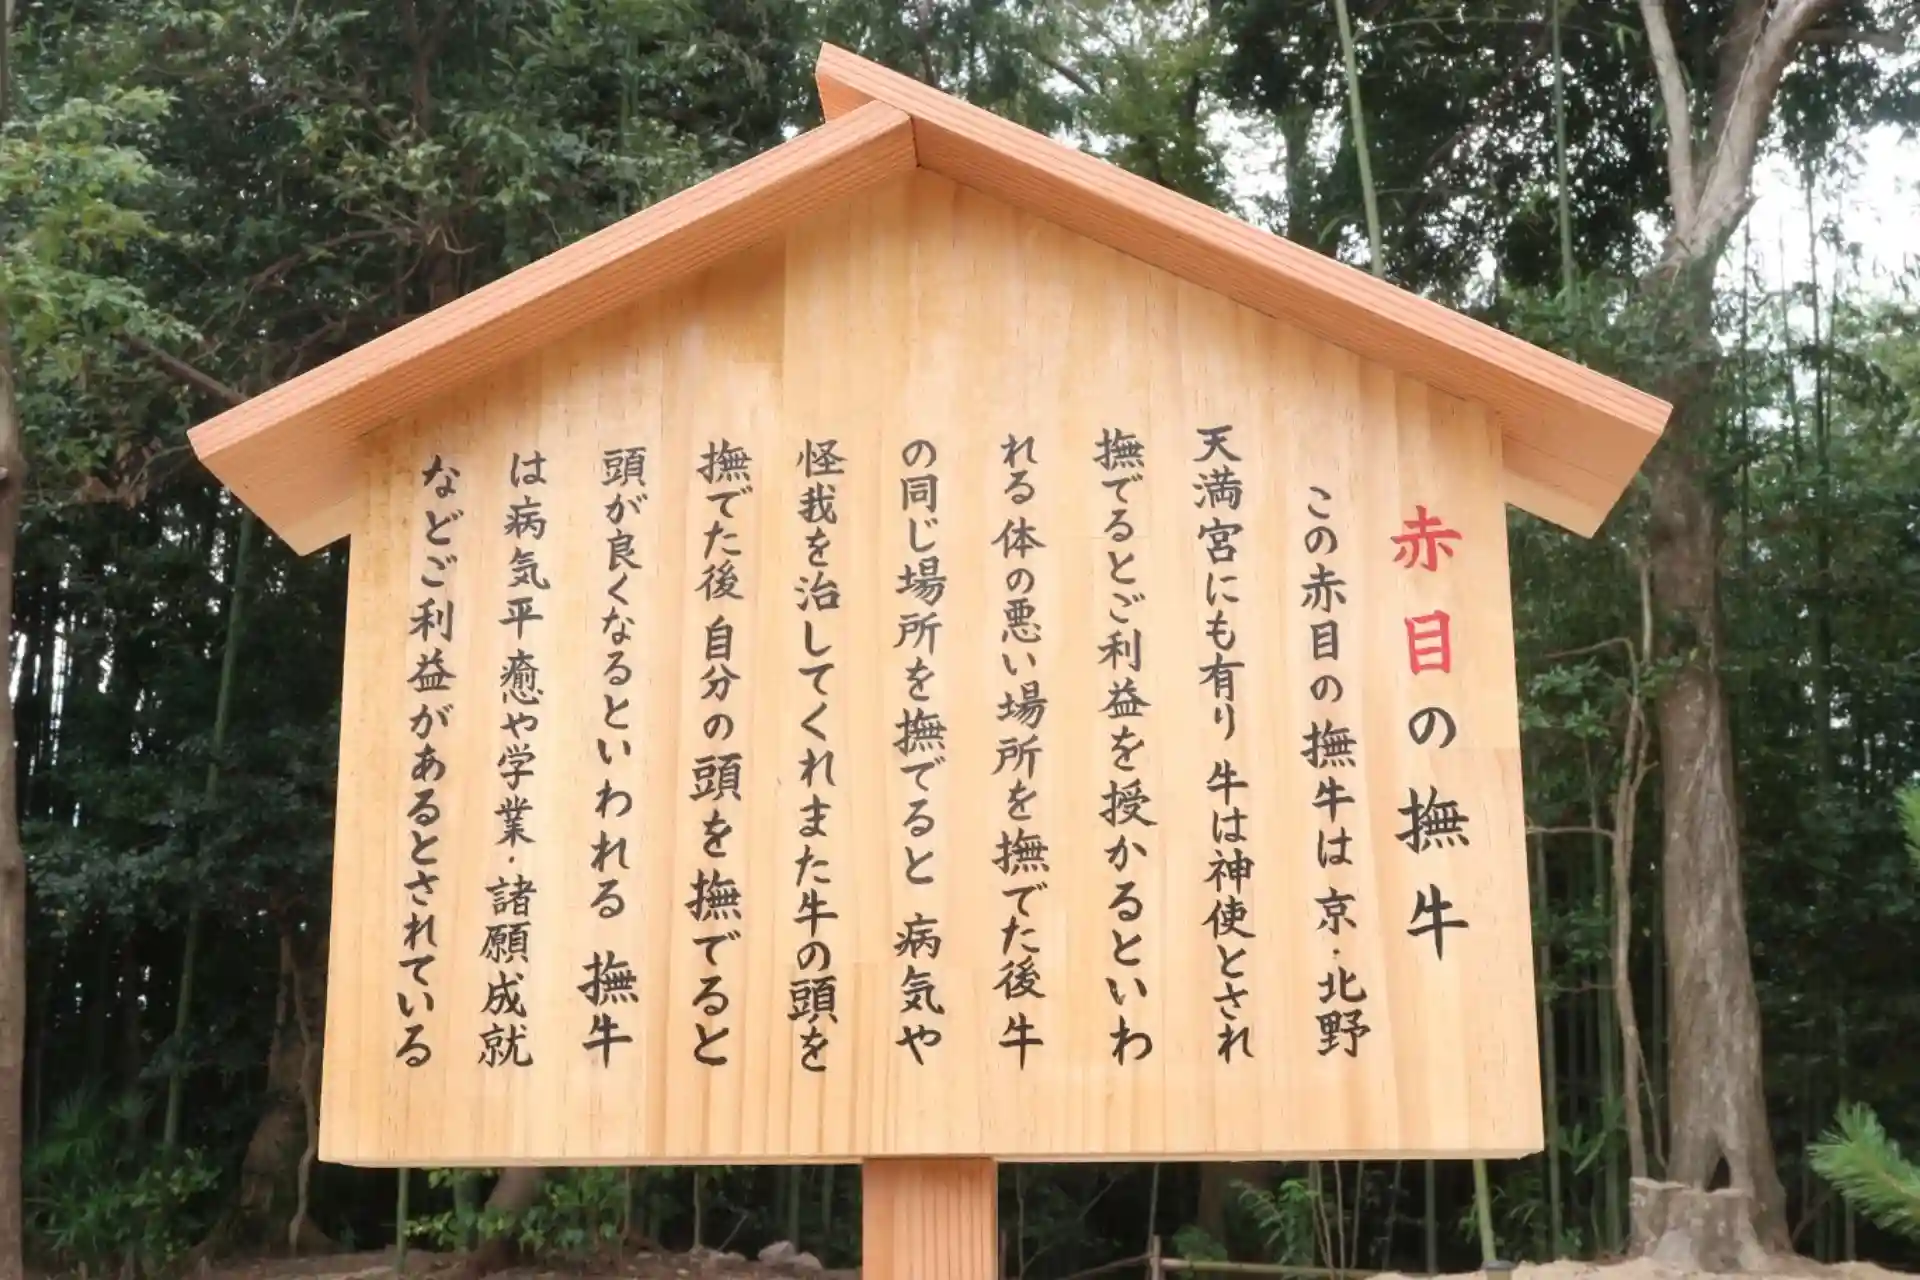 赤目の撫牛
この赤目の撫牛は京・北野
天満宮にも有り牛は神使とされ
撫でるとご利益を授かるといわ
れる体の悪い場所を撫でた後牛
の同じ場所を撫でると病気や
怪我を治してくれまた牛の頭を
撫でた後自分の頭を撫でると
頭が良くなるといわれる撫牛
は病気平癒や学業・諸願成就
などご利益があるとされている